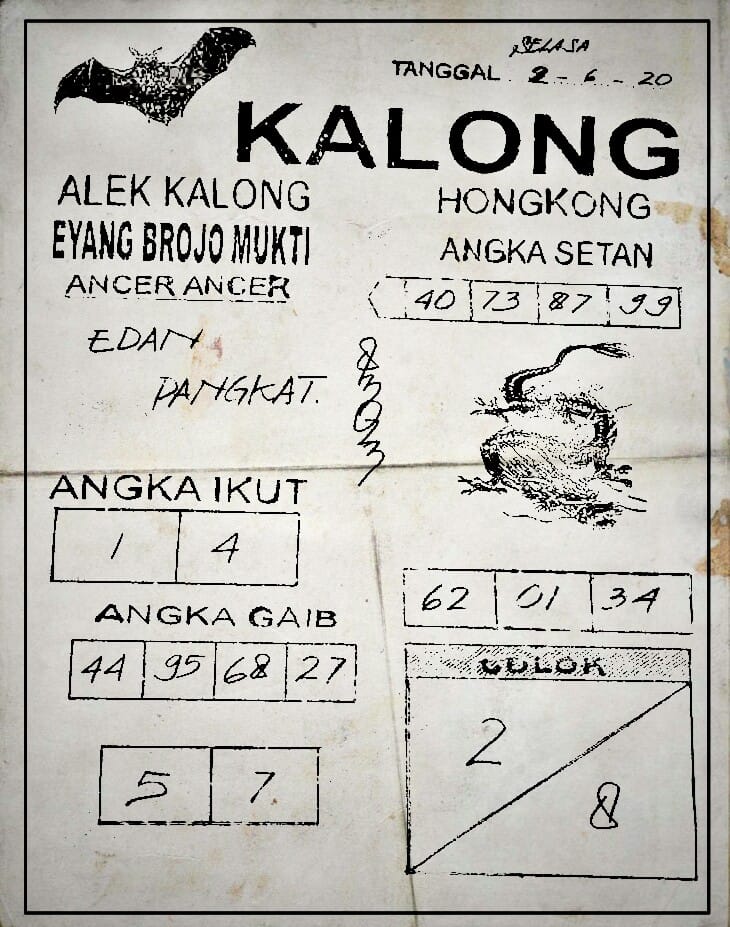 SELASA
TANGGAL 2 - 6 - 20
KALONG
ALEK KALONG
EYANG BROJO MUKTI
ANCER ANCER
EDAN
PANGKAT.
8
3
0
3
HONGKONG
ANGKA SETAN
40 73 87 99
ANGKA IKUT
1 4
ANGKA GAIB
44 95 68 27
5 7
62 01 34
COLOK
2
8